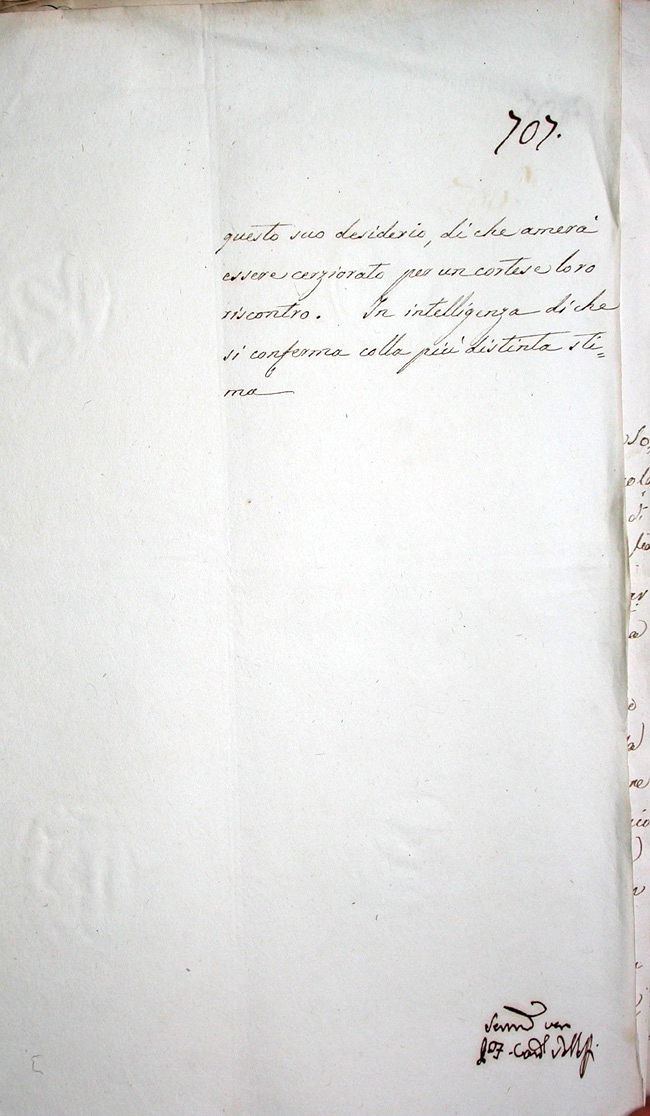 707.
questo suo desiderio, di che amerà
essere cerziorato per un cortese loro
riscontro. In intelligenza di che
si conferma colla più distinta sti=
ma